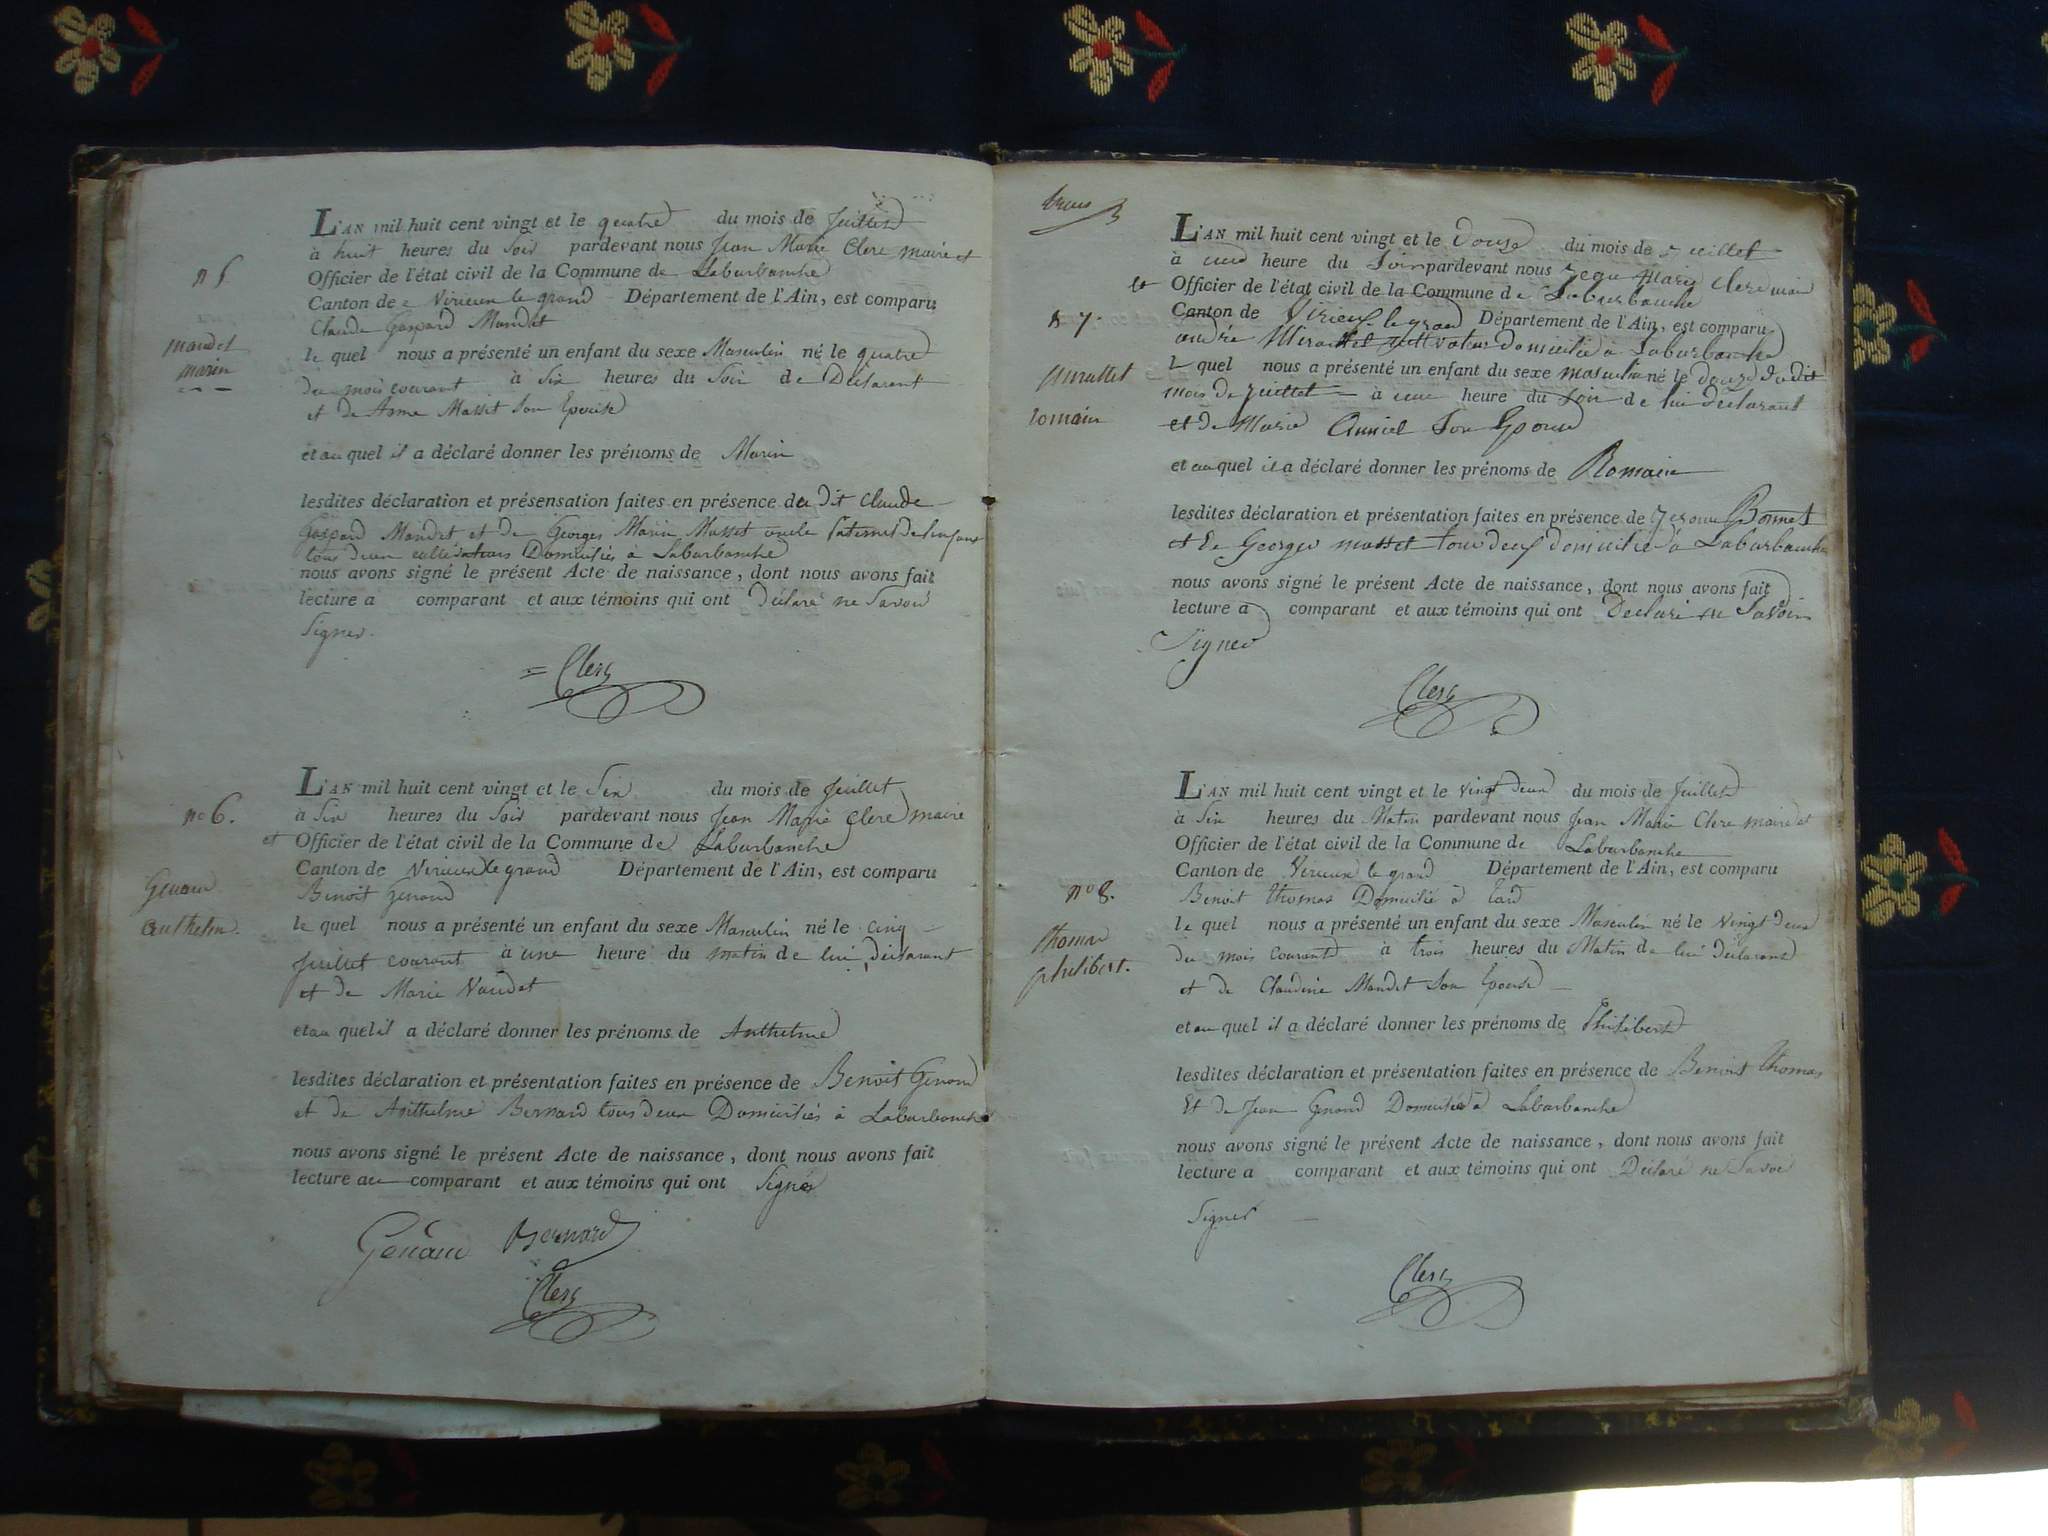 n 5
mandet
marin
L'AN mil huit cent vingt et le quatre du mois de Juillet
à huit heures du Soir pardevant nous Jean Marie Clerc maire et
Officier de l'état civil de la Commune de Labarbanche
Canton de Virieux le grand Département de l'Ain, est comparu
Claude Gaspard Mandet
le quel nous a présenté un enfant du sexe Masculin né le quatre
du mois courant à Six heures du Soir de Déclarant
et de Masset Son Epouse
et au quel il a déclaré donner les prénoms de Marin
lesdites déclaration et présensation faites en présence du dit Claude
Gaspard Mandet et de Georges Marin Masset oncle Paternel de l'enfant
tous deux cultivateurs Domiciliés à Labarbanche
nous avons signé le présent Acte de naissance, dont nous avons fait
lecture a comparant et aux témoins qui ont déclaré ne Savoir
Signer.
Clerc
n° 6.
Genoud
anthelm.
L'AN mil huit cent vingt et le Six du mois de Juillet
à Six heures du Soir pardevant nous Jean Marie Clerc maire
et Officier de l'état civil de la Commune de Labarbanche
Canton de Virieux le grand Département de l'Ain, est comparu
Benoit Genoud
le quel nous a présenté un enfant du sexe Masculin né le cinq
Juillet courant à une heure du matin de lui déclarant
et de Marie Vaudet
et au quel il a déclaré donner les prénoms de Anthelme
lesdites déclaration et présentation faites en présence de Benoit Genoud
et de Anthelme Bernard tous deux Domiciliés à Labarbanche
nous avons signé le présent Acte de naissance, dont nous avons fait
lecture au comparant et aux témoins qui ont Signés
Genoud Bernard
Clerc
n 7.
romain
L'AN mil huit cent vingt et le Douze du mois de Juillet
à une heure du Soir pardevant nous Jean Marie Clerc maire
et Officier de l'état civil de la Commune de Labarbanche
Canton de Virieux le grand Département de l'Ain, est comparu
andré cultivateur domicilié à Labarbanche
le quel nous a présenté un enfant du sexe masculin né le douze dudit
mois de juillet à une heure du Soir de lui déclarant
et de Marie Son Epouse
et au quel il a déclaré donner les prénoms de Romain
lesdites déclaration et présentation faites en présence de Jerome Bonnet
et de Georges masset tous deux domicilié à Labarbanche
nous avons signé le présent Acte de naissance, dont nous avons fait
lecture à comparant et aux témoins qui ont Déclaré ne Savoir
Signer
Clerc
n° 8.
thomas
philibert.
L'AN mil huit cent vingt et le Vingt deux du mois de Juillet
à Six heures du Matin pardevant nous Jean Marie Clerc maire et
Officier de l'état civil de la Commune de Labarbanche
Canton de Virieux le grand Département de l'Ain, est comparu
Benoit thomas Domicilié à
le quel nous a présenté un enfant du sexe Masculin né le Vingt deux
du mois courant à trois heures du Matin de lui déclarant
et de Claudine Mandet Son Epouse
et au quel il a déclaré donner les prénoms de Philibert
lesdites déclaration et présentation faites en présence de Benoit thomas
Et de Jean Genoud Domicilié à Labarbanche
nous avons signé le présent Acte de naissance, dont nous avons fait
lecture a comparant et aux témoins qui ont Déclaré ne Savoir
Signer
Clerc